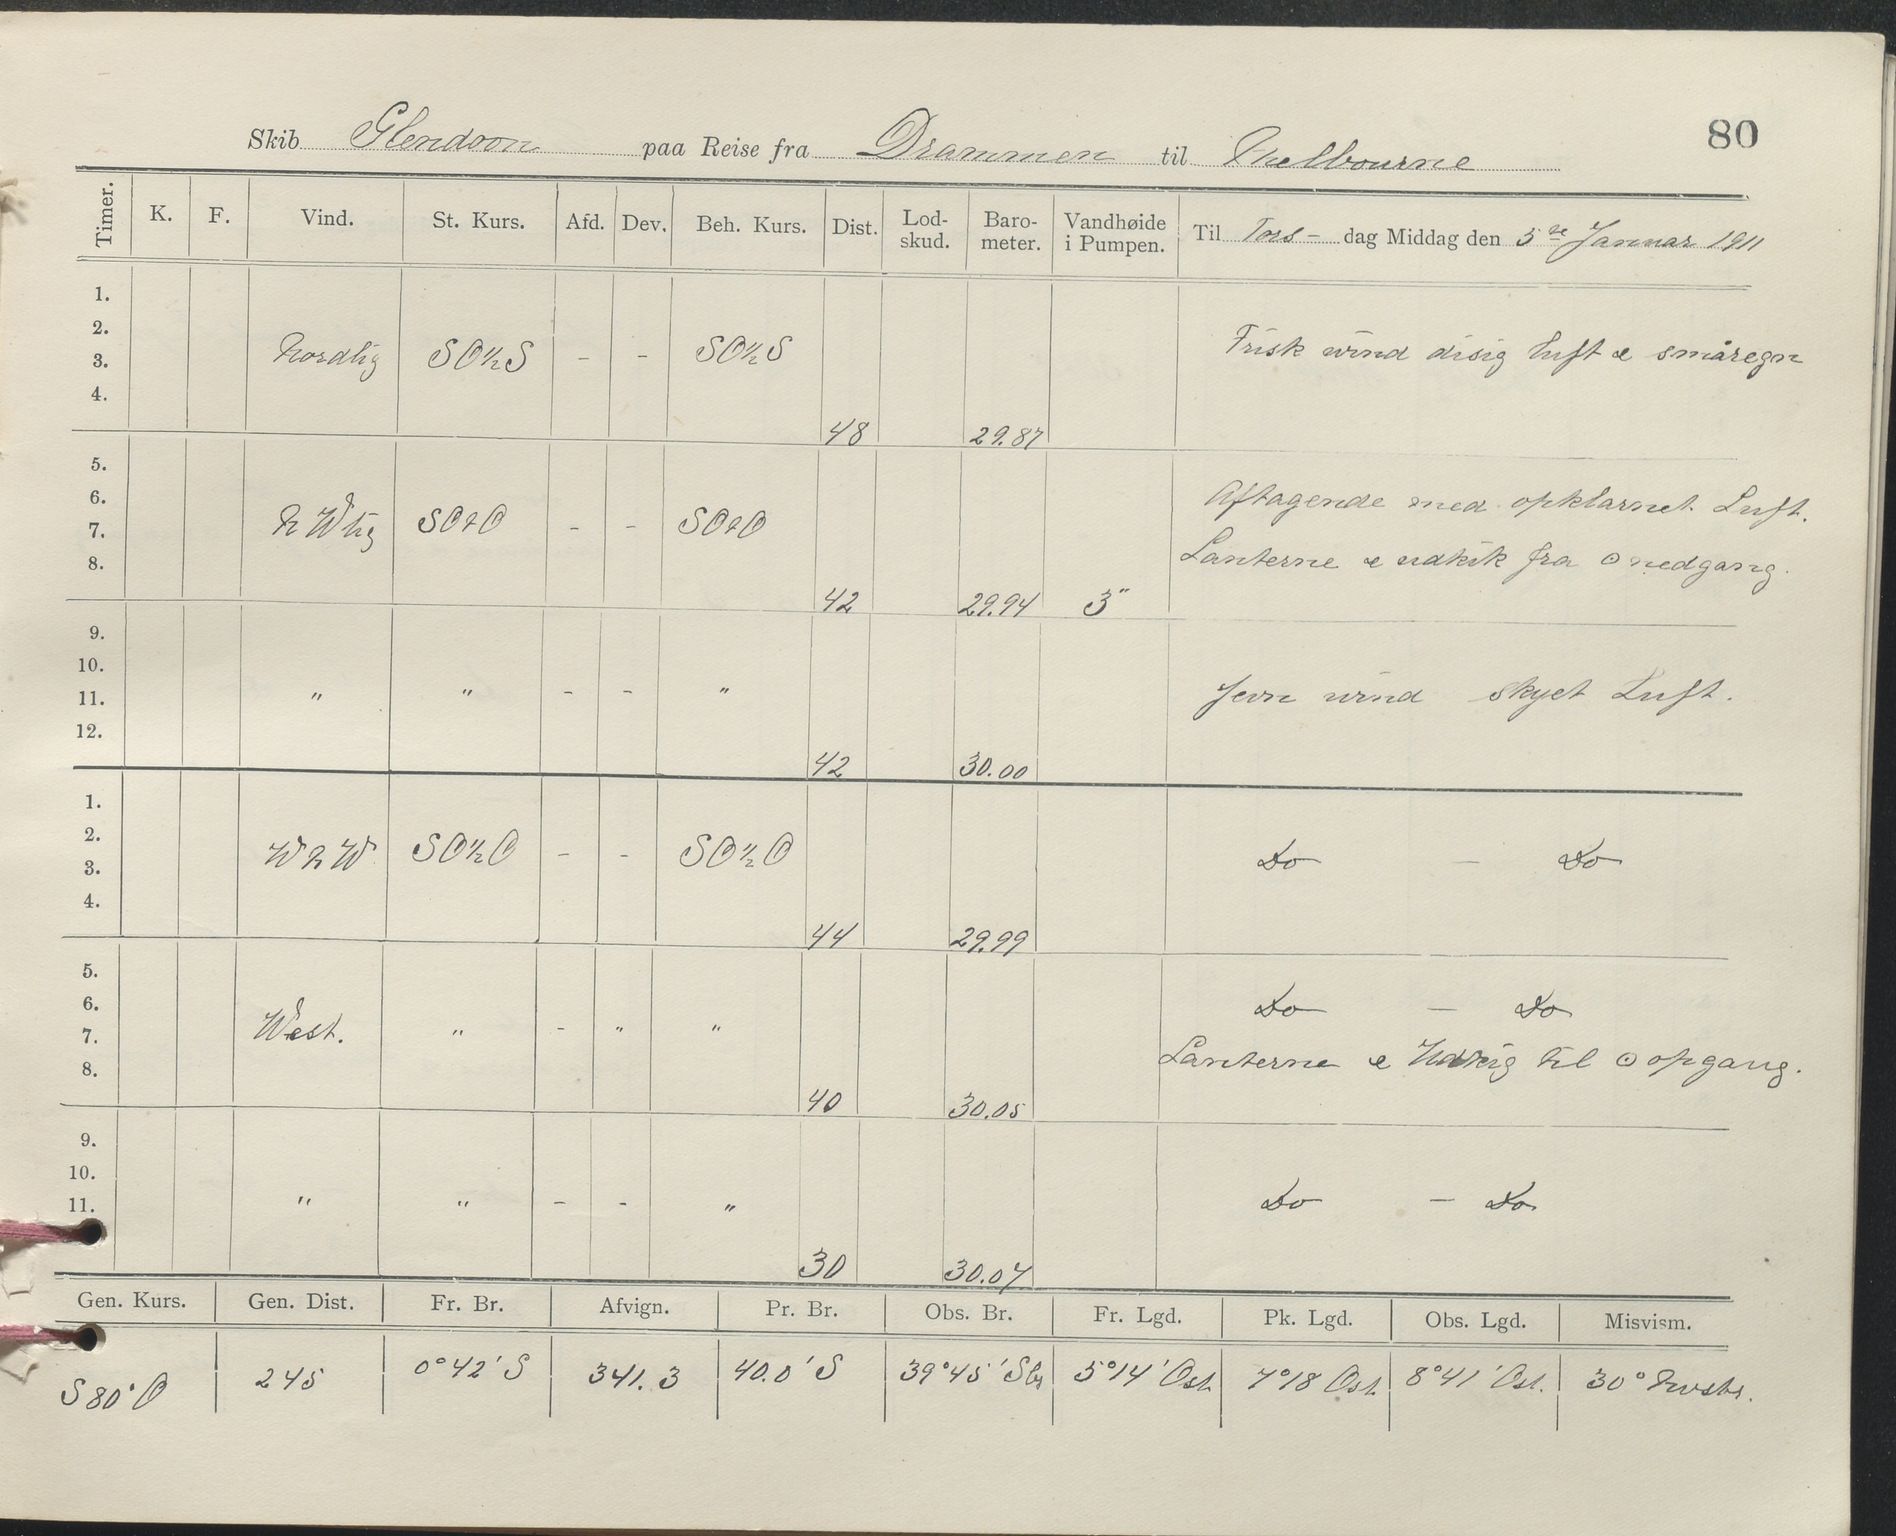 80
Skib Glendoon paa Reise fra Drammen til Melbourne
Timer. K. F. Vind. St. Kurs. Afd. Dev. Beh. Kurs. Dist. Lod-skud. Baro-meter. Vandhøide i Pumpen. Til Tors- dag Middag den 5te Januar 1911
1.
2.
3. Nordlig SO½S - - SO½S Frisk vind disig luft & småregn
4.
48 29.87
5.
6. Aftagende med opklarnet Luft.
7. NWlig SO - - SO
8. Lanterne & udkik fra ⊙ nedgang.
42 29.94 3"
9.
10.
11. " " - - " Jevn vind skyet Luft.
12.
42 30.00
1.
2.
3. WNW SO½O - - SO½O Do - Do
4.
44 29.99
5.
6. Do - Do
7. West. " - " "
8. Lanterne & Udkig til ⊙ opgang.
40 30.05
9.
10.
11. " " - - " Do - Do
30 30.07
Gen. Kurs. Gen. Dist. Fr. Br. Afvign. Pr. Br. Obs. Br. Fr. Lgd. Pk. Lgd. Obs. Lgd. Misvism.
S80°O 245 0°42'S 341.3 40.0'S 39°45' 5°14' Ost. 7°18 Ost. 8°41' Ost. 30°